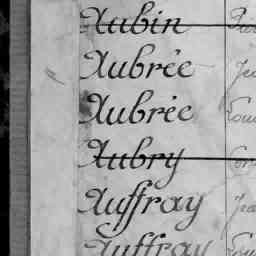 Aubin
Aubrée
Aubrée
Aubry
Auffray
Auffray